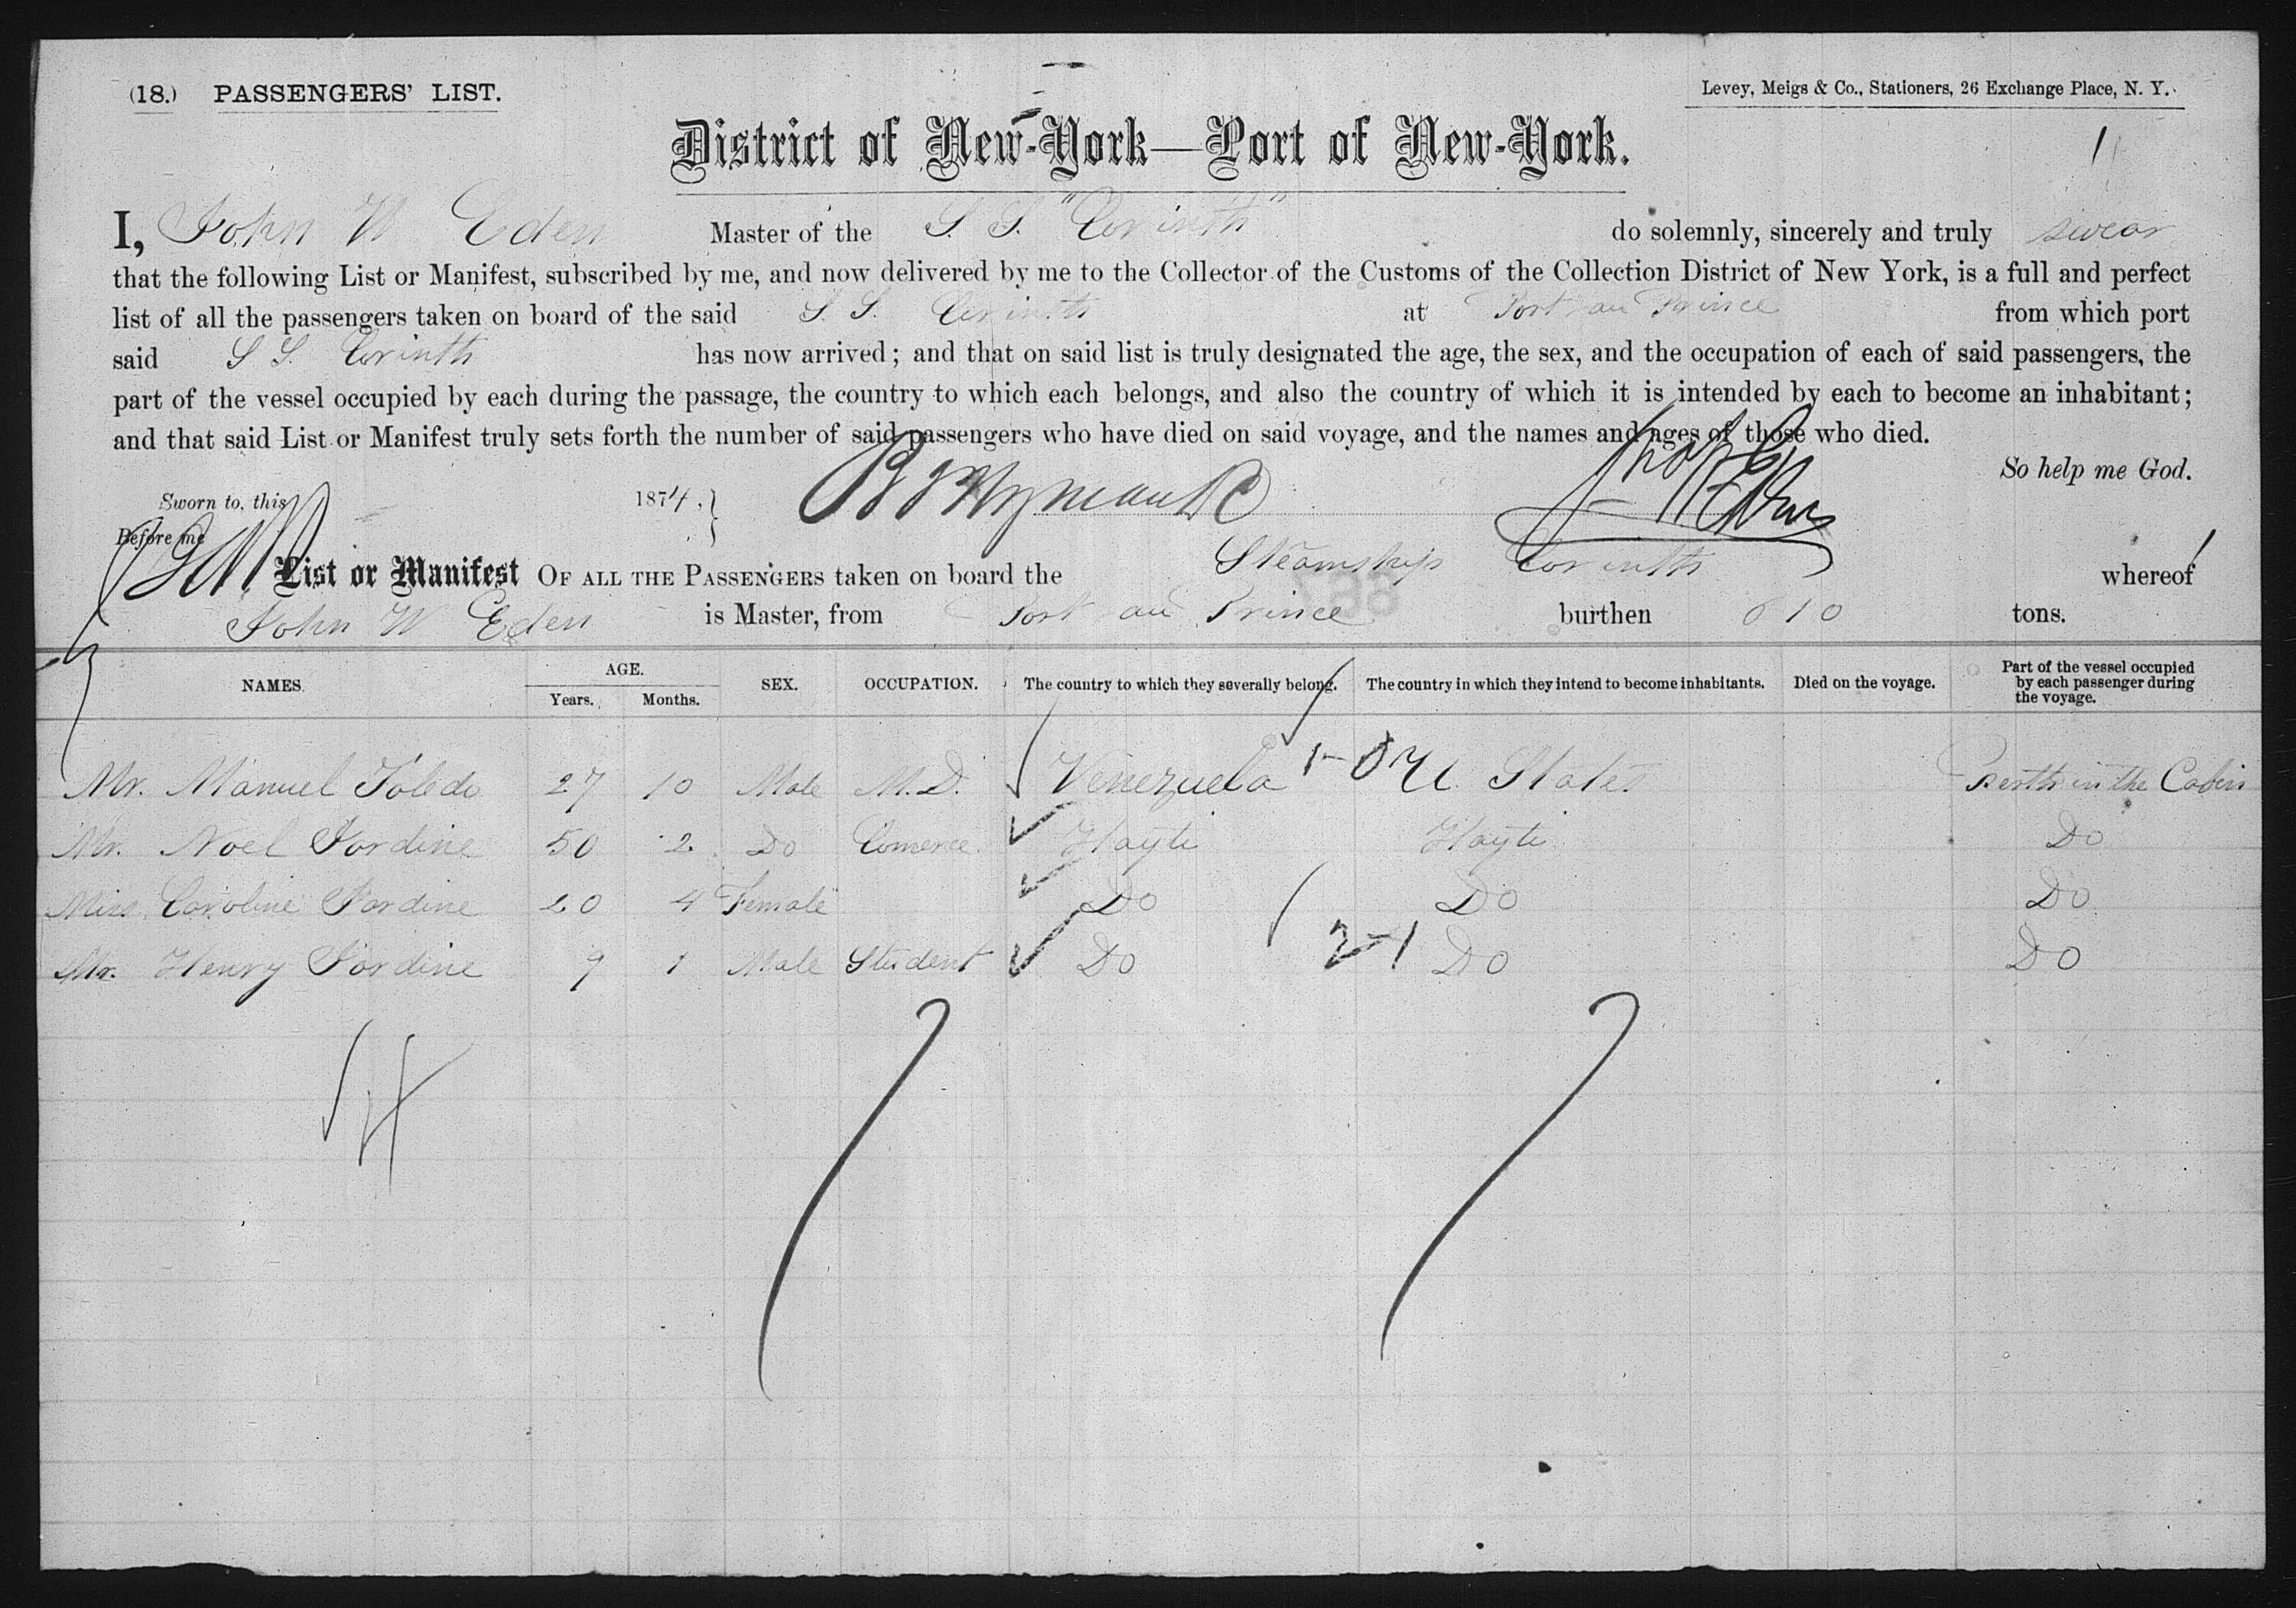 (18.) PASSENGERS' LIST.
Levey, Meigs & Co., Stationers, 26 Exchange Place, N. Y.
District of New-York—Port of New-York.
1
I, John W Eden Master of the S. S. "Corinth" do solemnly, sincerely and truly swear
that the following List or Manifest, subscribed by me, and now delivered by me to the Collector of the Customs of the Collection District of New York, is a full and perfect
list of all the passengers taken on board of the said S. S. Corinth at Port au Prince from which port
said S S. Corinth has now arrived; and that on said list is truly designated the age, the sex, and the occupation of each of said passengers, the
part of the vessel occupied by each during the passage, the country to which each belongs, and also the country of which it is intended by each to become an inhabitant;
and that said List or Manifest truly sets forth the number of said passengers who have died on said voyage, and the names and ages of those who died.
So help me God.
Sworn to, this 1874.
Before me
List or Manifest OF ALL THE PASSENGERS taken on board the Steamship Corinth whereof
John W Eden is Master, from Port au Prince burthen 610 tons.
NAMES. AGE. SEX. OCCUPATION. The country to which they severally belong. The country in which they intend to become inhabitants. Died on the voyage. Part of the vessel occupied by each passenger during the voyage.
Years. Months.
Mr. Manuel Toledo 27 10 Male M.D. Venezuela 1-0 U. States Berth in the Cabin
Mr. Noel Jordine 50 2 Do Comerce Hayti Hayti Do
Miss Caroline Jordine 20 4 Female Do Do Do
Mr. Henry Jordine 9 1 Male Student Do 2-1 Do Do